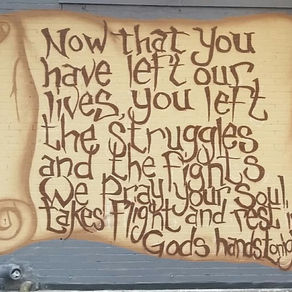 Now that you
have left our
lives, you left
the struggles
and the fights
We Pray your Soul,
takes flight and rest
Gods hands